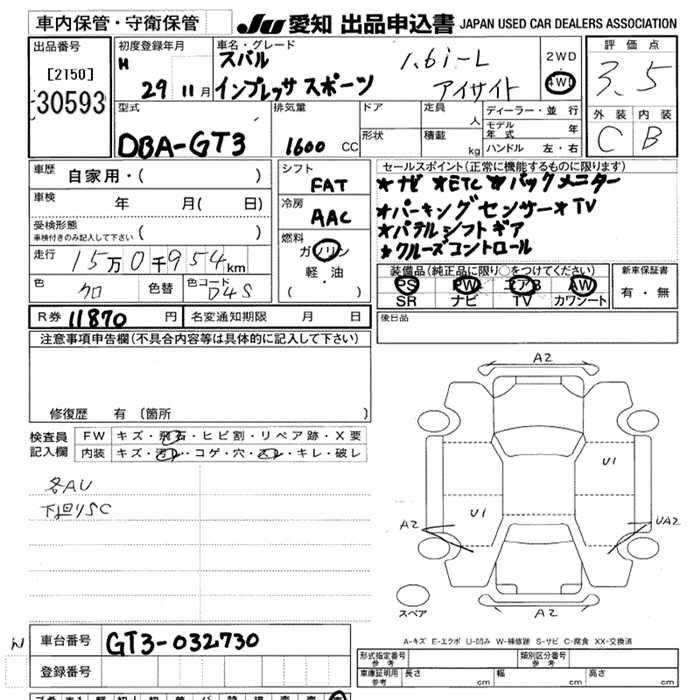 車内保管・守衛保管
JU 愛知 出品申込書 JAPAN USED CAR DEALERS ASSOCIATION
出品番号
[2150]
30593
初度登録年月
H 29 11月
車名・グレード
スバル 1.6i-L
インプレッサスポーツ アイサイト
2WD
4WD
評価点
3.5
外装 内装
C B
型式
DBA-GT3
排気量
1600 CC
ドア
形状
定員 人
積載 kg
ディーラー・並行
モデル年式 年
ハンドル 左・右
車歴 自家用・( )
車検 年 月( 日)
受検形態
車検付きのみ記入して下さい ( )
走行 15万0千954km
色 クロ 色替 色コード D4S
シフト
FAT
冷房
AAC
燃料
ガソリン
軽・油
( )
セールスポイント(正常に機能するものに限ります)
★ナビ ★ETC ★バックメニター
★パーキングセンサー★TV
★パドルシフトギア
★クルーズコントロール
装備品(純正品に限り○をつけてください)
PS PW エアB AW
SR ナビ TV カワシート
新車保証書
有・無
後日品
R券 11870 円 名変通知期限 月 日
注意事項申告欄(不具合内容等は具体的に記入して下さい)
修復歴 有 〔箇所 〕
検査員
記入欄
FW キズ・飛石・ヒビ割・リペア跡・X要
内装 キズ・汚レ・コゲ・穴・スレ・キレ・破レ
各AU
下廻りSC
A2
U1
U1
A2
UA2
A2
スペア
A-キズ E-エクボ U-凹み W-補修跡 S-サビ C-腐食 XX-交換済
車台番号 GT3-032730
登録番号
形式指定番号
参考
類別区分番号
参考
車庫証明用
参考
長さ cm 幅 cm 高さ cm